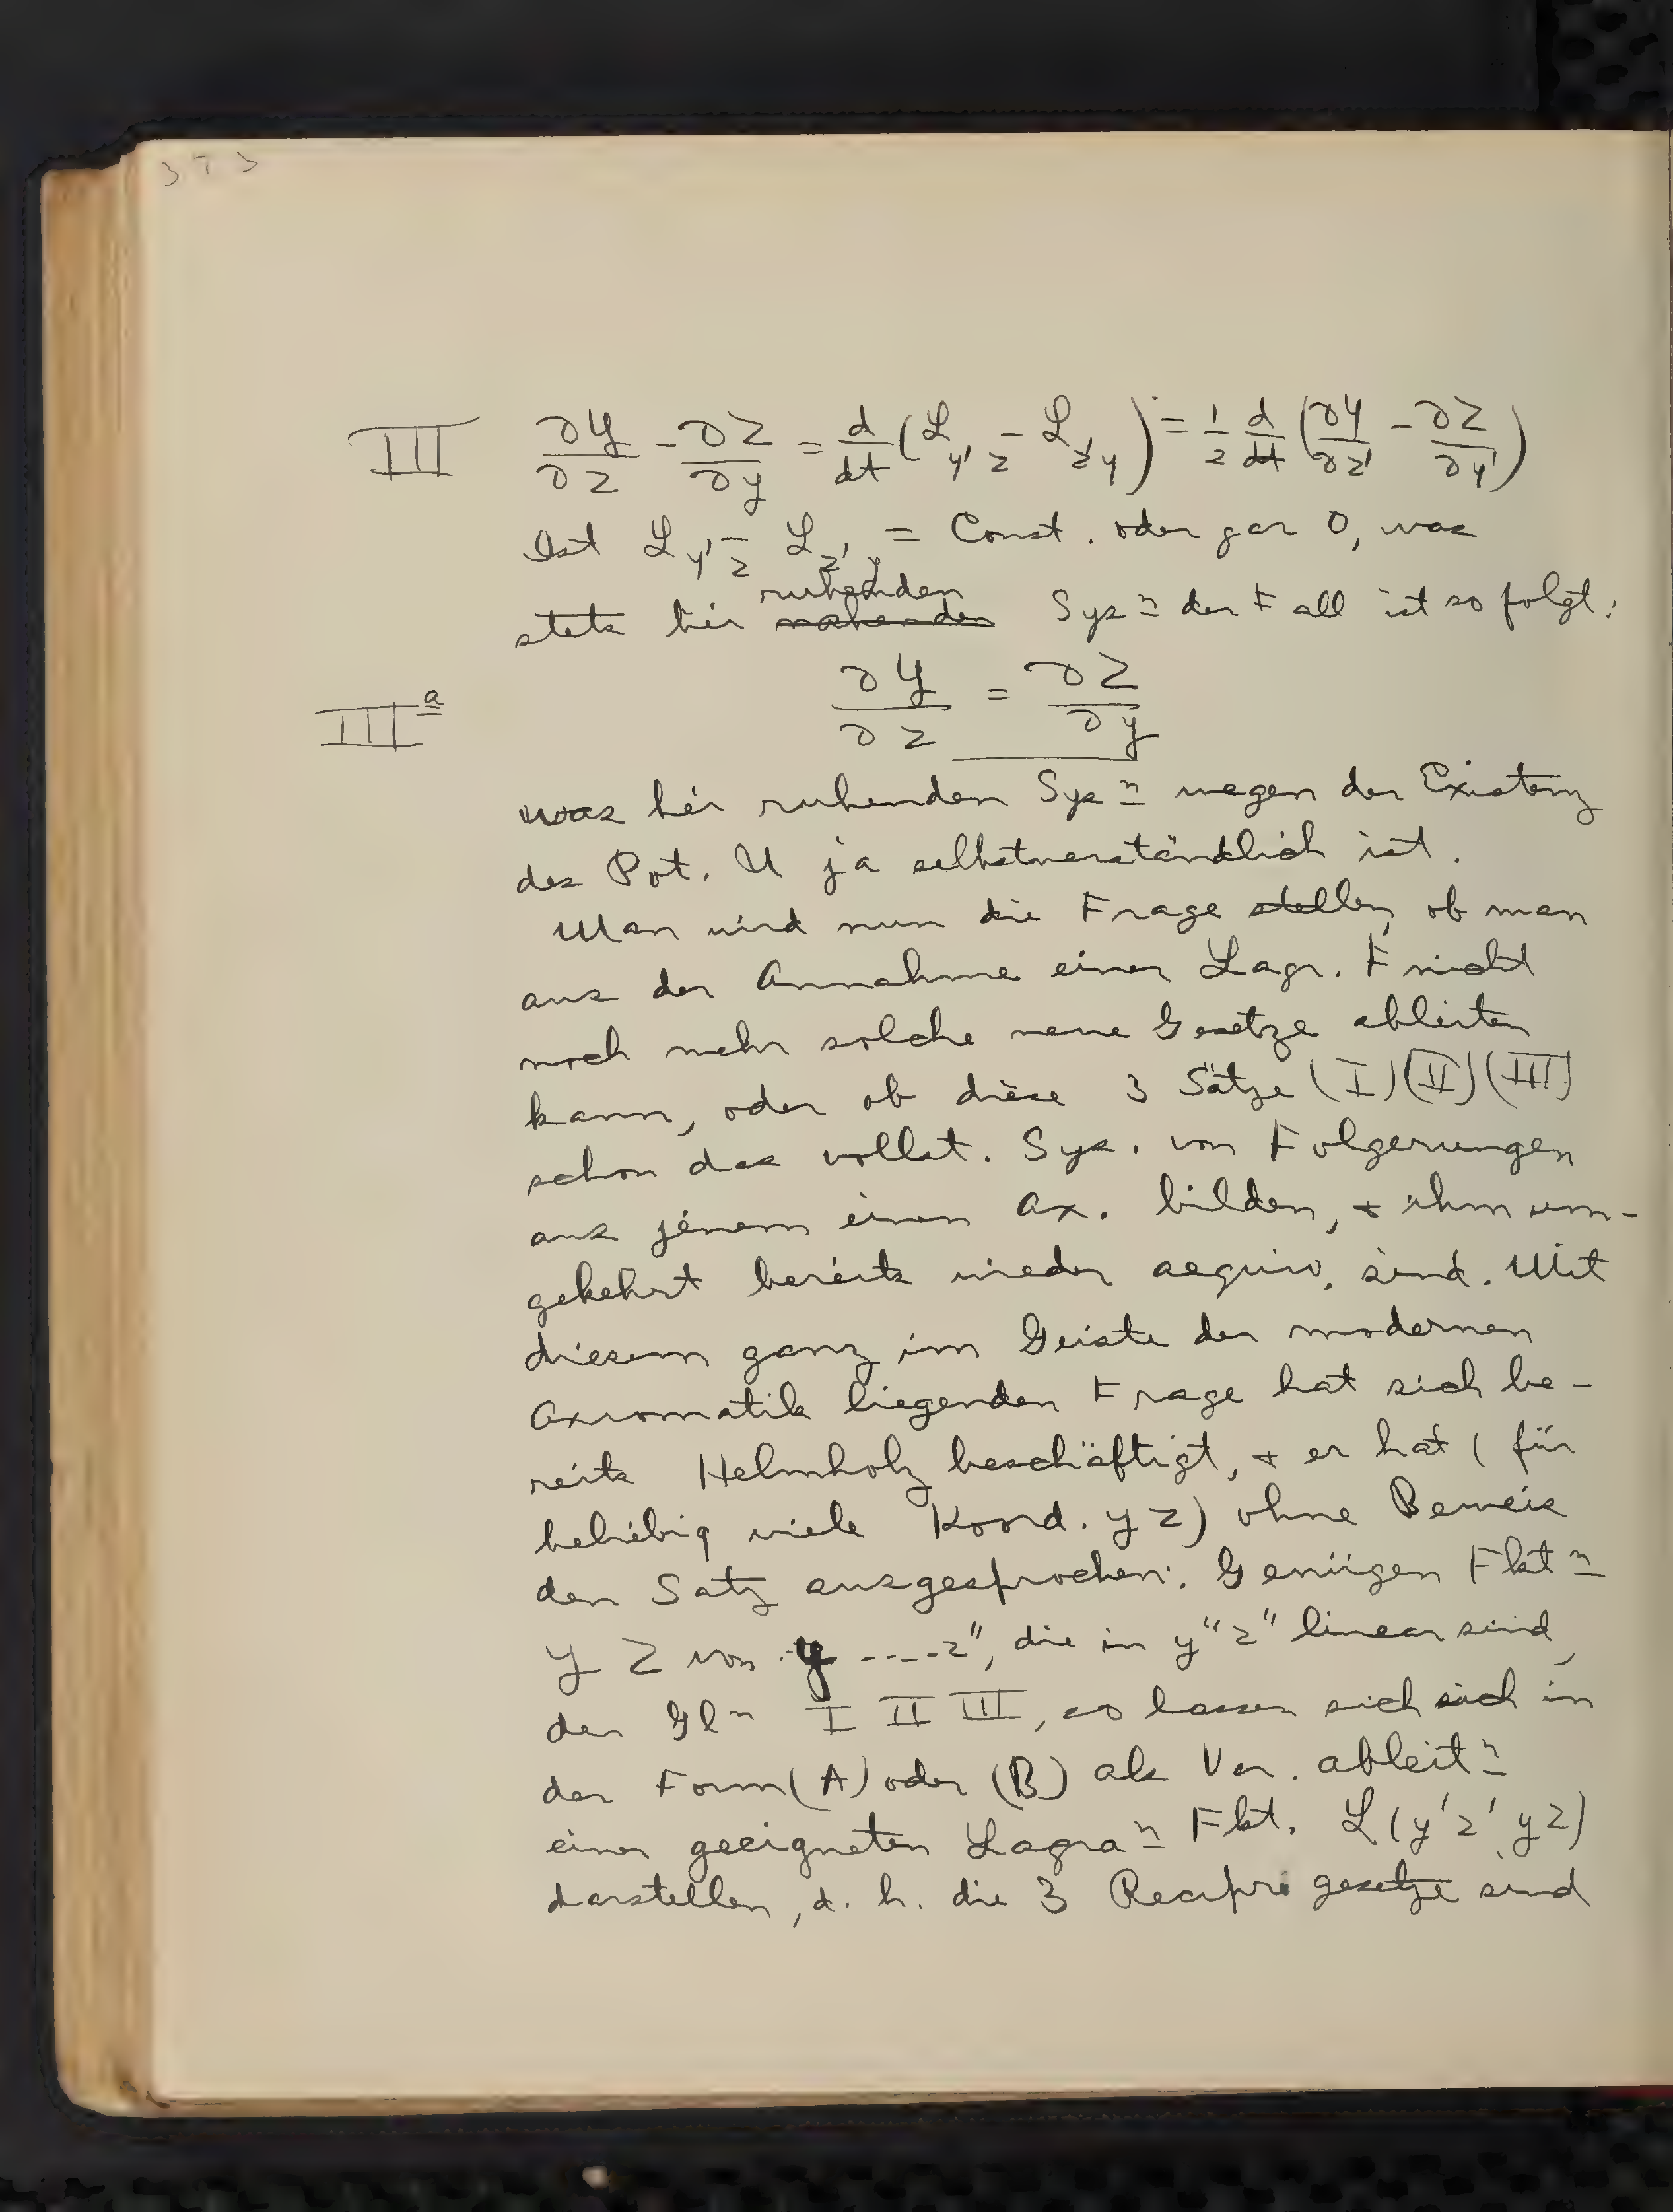 373
III ∂Y/∂z - ∂Z/∂y = d/dt (ℒ_y'z - ℒ_z'y) = 1/2 d/dt (∂Y/∂z' - ∂Z/∂y')
Ist ℒ_y'z - ℒ_z'y = Const. oder gar 0, was
ruhenden
stets bei Sys<u>n</u> der Fall ist so folgt:
III<u>a</u> ∂Y/∂z = ∂Z/∂y
was bei ruhenden Sys<u>n</u> wegen der Existenz
des Pot. U ja selbstverständlich ist.
Man wird nun die Frage stellen, ob man
aus der Annahme einer Lagr. F nicht
noch mehr solche neue Gesetze ableiten
kann, oder ob diese 3 Sätze (I)(II)(III)
schon das vollst. Sys. von Folgerungen
aus jenem einen Ax. bilden, + ihm um-
gekehrt bereits wieder aequiv. sind. Mit
diesem ganz im Geiste der modernen
Axiomatik liegenden Frage hat sich be-
reits Helmholz beschäftigt, + er hat (für
beliebig viele Koord. y z) ohne Beweis
den Satz ausgesprochen: Genügen Fkt<u>n</u>
Y Z von y ....z", die in y" z" linear sind,
den Gln I II III, so lassen sich sich in
der Form (A) oder (B) als Var. ableit<u>n</u>
einer geeigneten Lagra<u>n</u> Fkt. ℒ(y' z' y z)
darstellen, d. h. die 3 Recipro gesetze sind